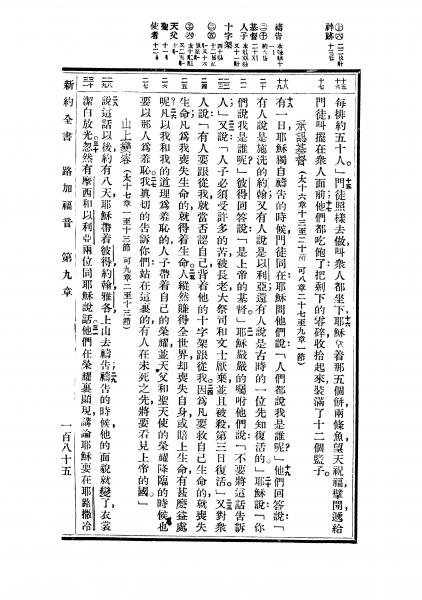 神跡
每排約五十人」門徒照樣去做叫衆人都坐下耶穌拿着那五個餅兩條魚望天祝福擘開遞給
門徒叫擺在衆人面前他們都吃飽了把剩下的零碎收拾起來裝滿了十二個籃子。
承認基督(太十六章十三至二十節 可八章二十七至九章一節)
禱告
基督
人子
十字架
有一日耶穌獨自禱告的時候門徒同在耶穌問他們說「人們都說我是誰呢」他們回答說「
有人說是施洗的約翰又有人說是以利亞還有人說是古時的一位先知復活的」耶穌說「你
們說我是誰呢」彼得回答說「是上帝的基督」耶穌嚴嚴的囑咐他們說「不要將這話告訴
人」又說「人子必須受許多的苦被長老大祭司和文士厭棄並且被殺第三日復活」又對衆
人說「有人要跟從我就當否認自己背着他的十字架跟從我因爲凡要救自己生命的就喪失
生命凡爲我喪失生命的就得着生命人縱然賺得全世界却喪失自身或賠上生命有甚麼益處
天父
聖
使者
呢凡以我和我的道理爲羞恥的人子帶着自己的榮耀並天父和聖天使的榮耀降臨的時候也
要以那人爲羞恥我真切的告訴你們站在這裏的有人在未死之先將要看見上帝的國」
山上變容(太十七章一至十三節 可九章二至十三節)
說這話以後約有八天耶穌帶着彼得約翰雅各上山去禱告禱告的時候他的面貌就變了衣裳
潔白放光忽然有摩西和以利亞兩位同耶穌說話他們在榮耀裏顯現講論耶穌要在耶路撒冷
新約全書 路加福音 第九章 一百八十五